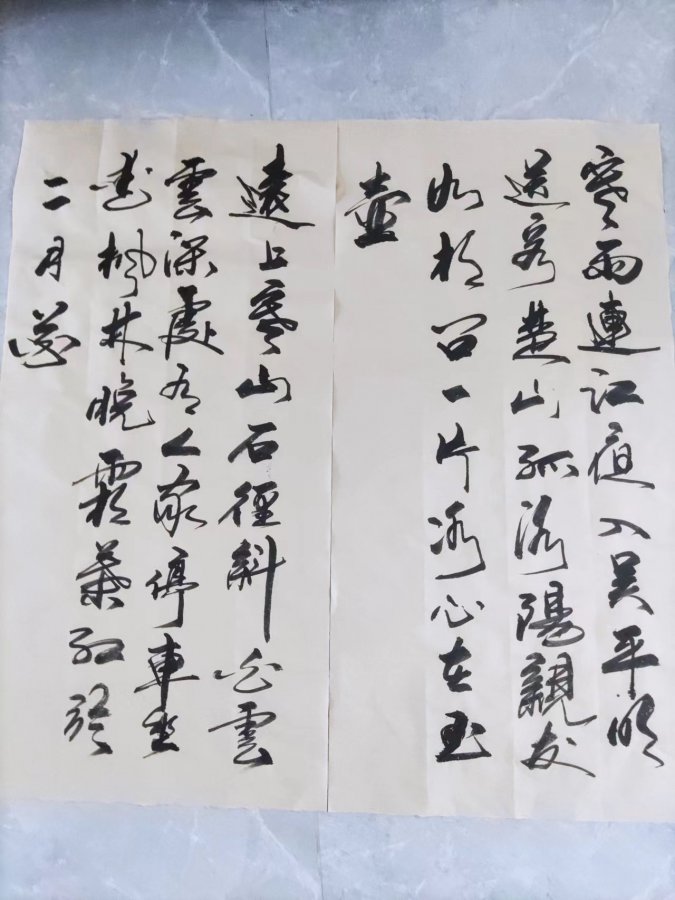 寒雨連江夜入吳平明
送客楚山孤洛陽親友
如相問一片冰心在玉
壺
遠上寒山石徑斜白雲
雲深處有人家停車坐
愛楓林晚霜葉紅於
二月花